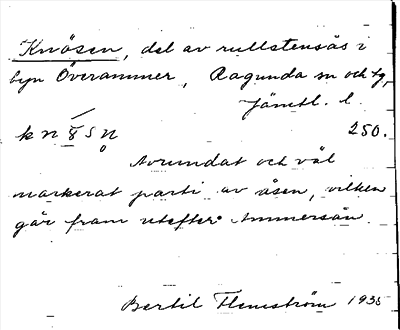 Knösen, del av rullstensås i
byn Överammer, Ragunda sn och tg,
Jämtl. l.
250.
Avrundat och väl
markerat parti av åsen, vilken
går fram utefter Ammersån.
Bertil Flemström 1935